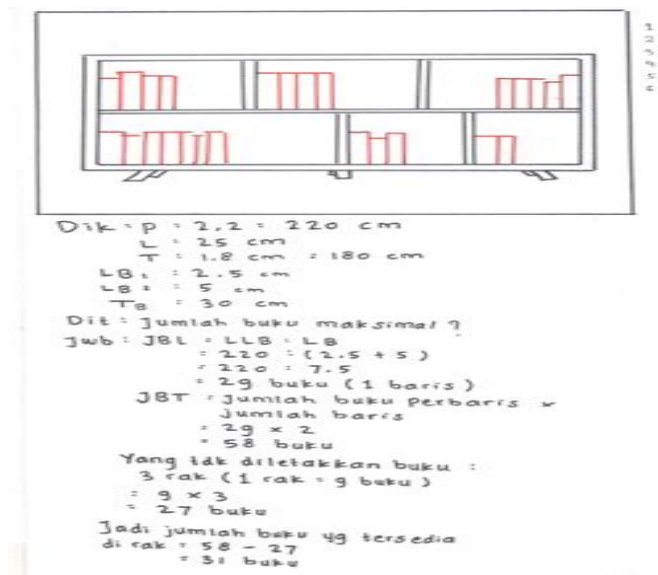 1
2
3
4
5
6
Dik : P : 2,2 = 220 cm
L : 25 cm
T : 1.8 cm = 180 cm
LB1 : 2.5 cm
LB2 : 5 cm
TB : 30 cm
Dit : Jumlah buku maksimal ?
Jwb : JBL = LLB : LB
= 220 : (2.5 + 5)
= 220 : 7.5
= 29 buku (1 baris)
JBT = Jumlah buku perbaris x
jumlah baris
= 29 x 2
= 58 buku
Yang tdk diletakkan buku :
3 rak (1 rak = 9 buku)
= 9 x 3
= 27 buku
Jadi jumlah buku yg tersedia
di rak = 58 - 27
= 31 buku